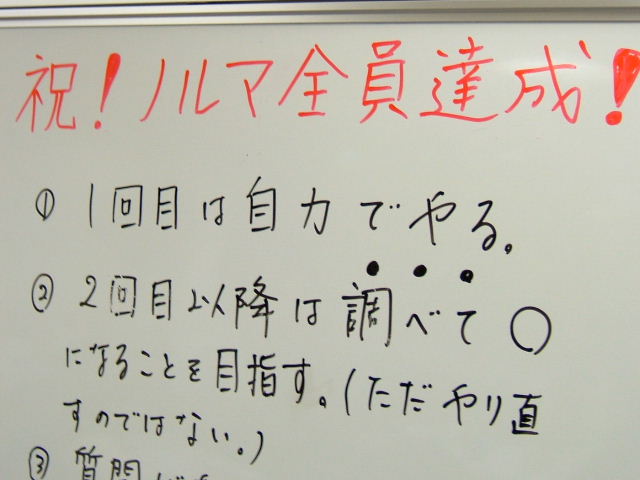 祝!ノルマ全員達成!
① 1回目は自力でやる。
② 2回目以降は調べて○
になることを目指す。(ただやり直
すのではない。)
③ 質問